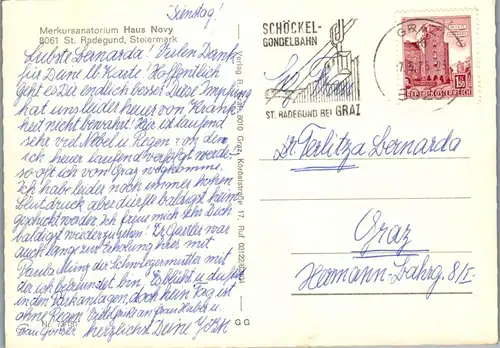 Dienstag!
Merkursanatorium Haus Novy
8061 St. Radegund, Steiermark
Liebste Bernarda! Vielen Dank
für Deine lb. Karte. Hoffentlich
geht es Dir endlich besser. Diese Impfung
hat uns leider heuer vor Krank-
heit nicht bewahrt. Hier ist laufend
sehr viel Nebel u. Regen
ich heuer laufend verfolgt werde
so oft ich von Graz wegkomme.
Ich habe leider noch immer hohen
Blutdruck aber dürfte baldigst heim
geschickt werden. Ich freue mich sehr Dich
baldigst wiederzusehen! Dr. Gartler war
auch lange zur Erholung hier mit
Paula Ming der Schwiegermutter mit
der ich befreundet bin. Es blüht u. duftet
in den Parkanlagen, doch kein Tag ist
ohne Regen. Frau Huber u.
Frau herzlichst Deine
Verlag 8010 Graz, Körösistraße 17, Ruf 03122
Nr.
G G
SCHÖCKEL-
GONDELBAHN
ST. RADEGUND BEI GRAZ
GRAZ
REPUBLIK ÖSTERREICH
Dr. Terlitza Bernarda
Graz
Hermann-Bahrg. 8/I